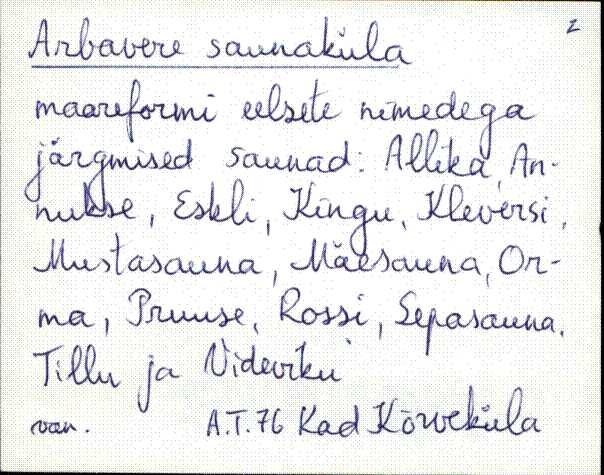 2
Arbavere saunaküla
maareformi eelsete nimedega
järgmised saunad: Allika, An-
nukse, Eskli, Kingu, Kleversi,
Mustasauna, Mäesauna, Or-
ma, Pruuse, Rossi, Sepasauna,
Tillu ja Videviku
van. A.T.76 Kad Kõrveküla